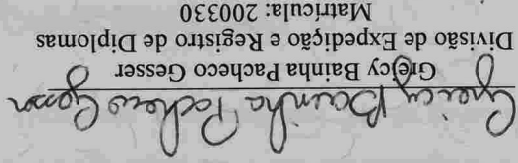 Greicy Bainha Pacheco Gesser
Greicy Bainha Pacheco Gesser
Divisão de Expedição e Registro de Diplomas
Matrícula: 200330